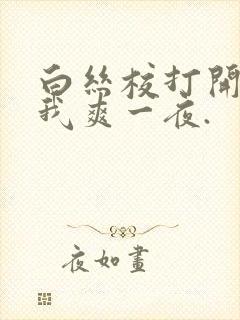 白絲校打開
我爽一夜.
夜如畫